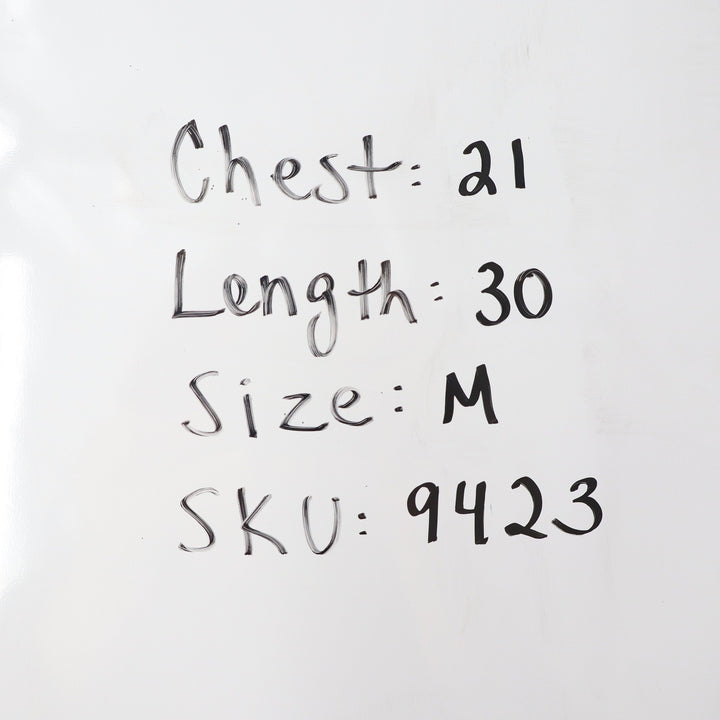 Chest: 21
Length: 30
Size: M
SKU: 9423